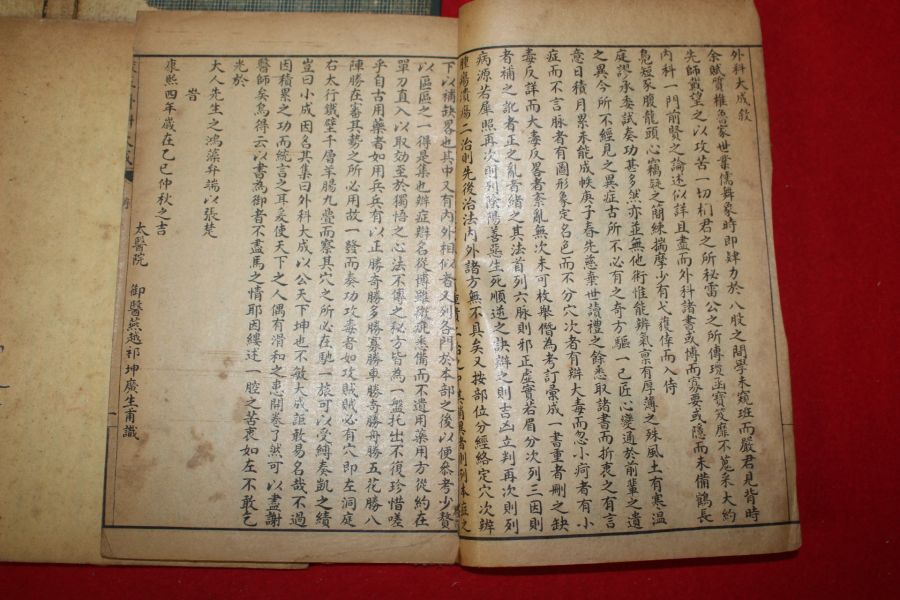 外科大成敘
余賦質椎魯家世業儒舞象時即肄力於八股之間學未窺班而嚴君見背時
先師戴望之以攻苦一切桐君之所秘雷公之所傳瓊函寶笈靡不蒐采大約
內科一門前賢之論述似詳且盡而外科諸書或博而寡要或隱而未備鶴長
鳧短豕腹龍頭心竊疑之簡練揣摩少有弋獲倖而入侍
庭謬承委試奏功甚多然亦並無他術惟能辨氣稟有厚薄之殊風土有寒溫
之異今所不經見之異症古所不必有之奇方驅一己匠心變通於前輩之遺
意日積月累未能成帙庚子春先慈棄世讀禮之餘悉取諸書而折衷之有言
症而不言脉者有圖形象定名色而不分穴次者有辯大毒而忽小疴者有小
毒反詳而大毒反畧者紊亂無次未可枚舉僭為考訂彙成一書重者刪之缺
者補之訛者正之亂者緒之其法首列六脉則邪正虛實若眉分次列三因則
病源若犀照再次則列陰陽善惡生死順逆之訣辯之則吉凶立判再次則列
腫瘍潰瘍二治則先後治法內外諸方無不具矣又按部位分經絡定穴次辨
下以補缺畧也其中又有內外相似者又列各門於本部之後以便參考少贅
以區區之一得是集也辯症辯名從博雖微疵悉備而不遺用藥用方從約在
單刀直入以取効至於獨悟之心法不傳之秘方皆為一盤托出不復珍惜嗟
乎自古用藥者如用兵兵有以正勝奇勝多勝寡勝車勝奇勝舟勝五花勝八
陣勝在審其勢之所必用故一發而奏功攻毒者如攻賊賊必有穴即左洞庭
右太行鐵壁千層羊腸九疊而察其穴之所必在馳一旅可以受縛奏凱之績
豈曰小成因名其集曰外科大成以公天下坤也不敏大成詎敢易名哉不過
因積累之功而統言之耳爰使天下之人偶有滑和之患開卷了然可以盡謝
醫師矣烏得云以書為御者不盡馬之情耶因縷述一腔之苦衷如左不敢乞
光於
大人先生之鴻藻弁端以張楚
旹
康熙四年歲在乙巳仲秋之吉
太醫院 御醫燕越祁坤廣生甫識